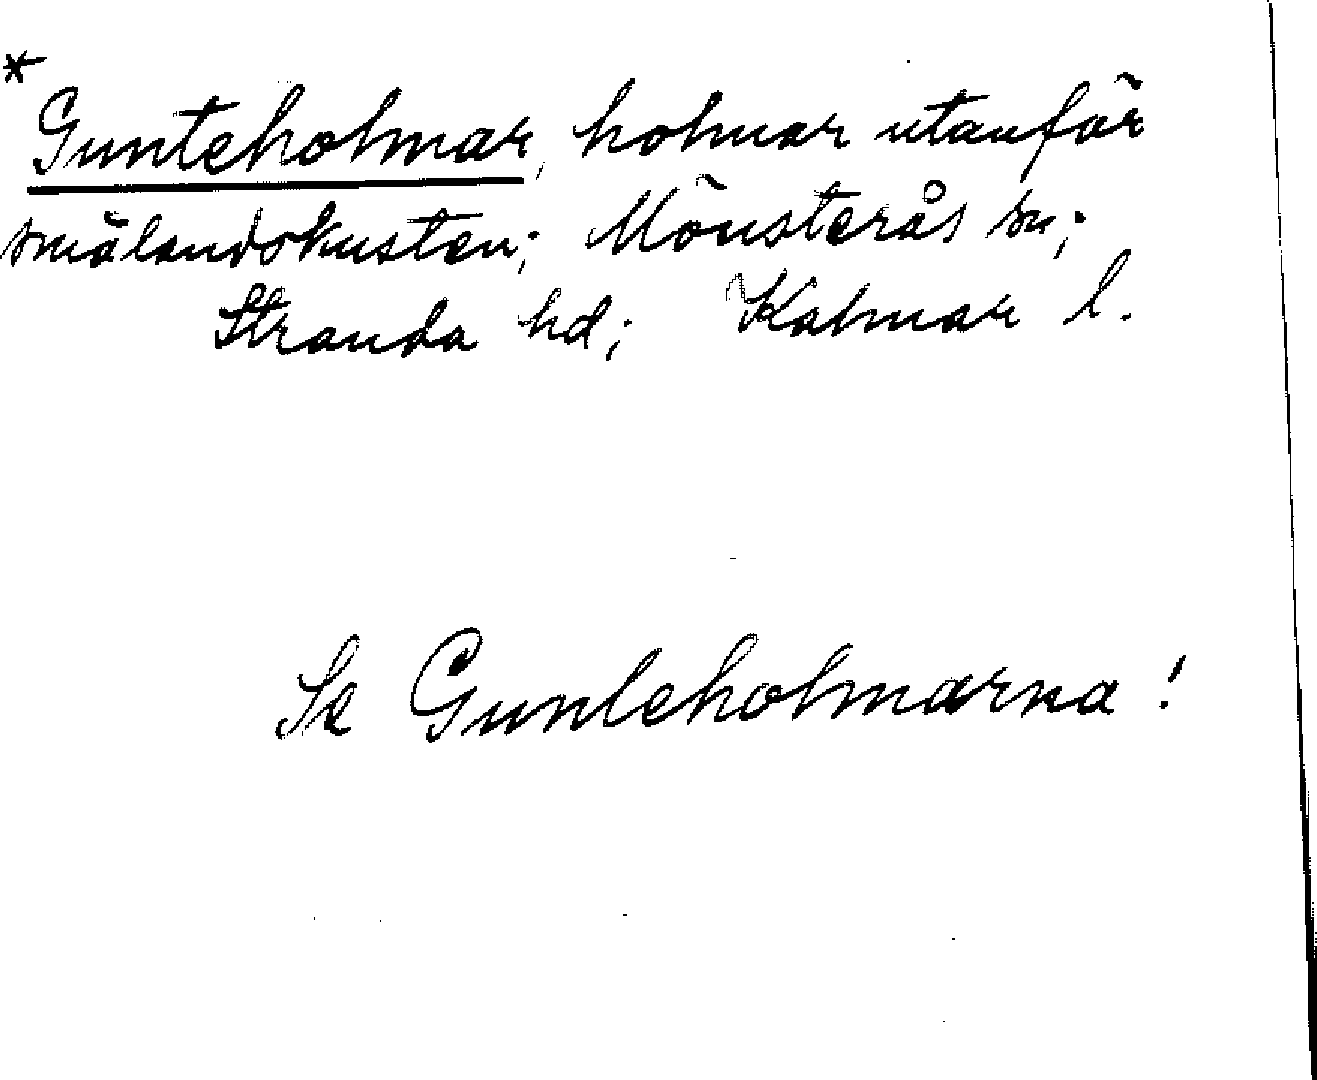 * Gunteholmar, holmar utanför
smålandskusten; Mönsterås sn;
Stranda hd; Kalmar l.
Se Gunleholmarna!